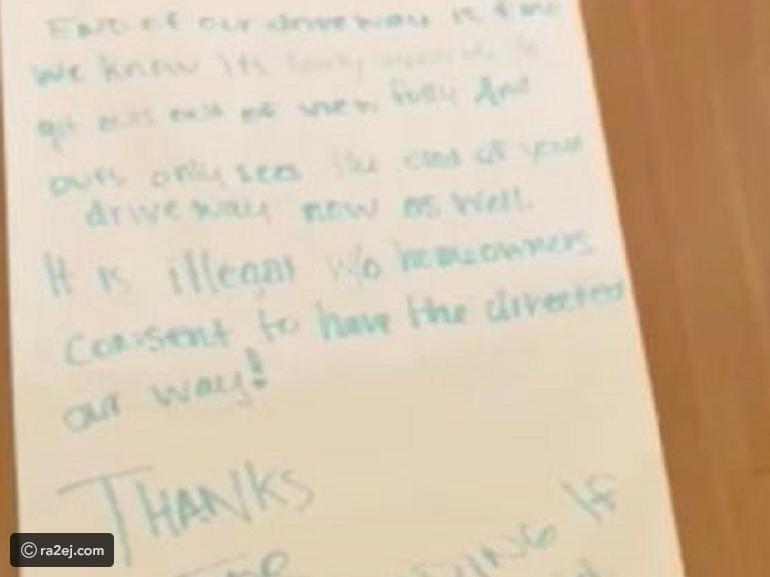 End of our driveway is fine
we know its to
get out of view fully And
ours only sees the end of your
driveway now as well.
It is illegal w/o homeowners
consent to have the directed
our way!
THANKS
FOR
IF
© ra2ej.com